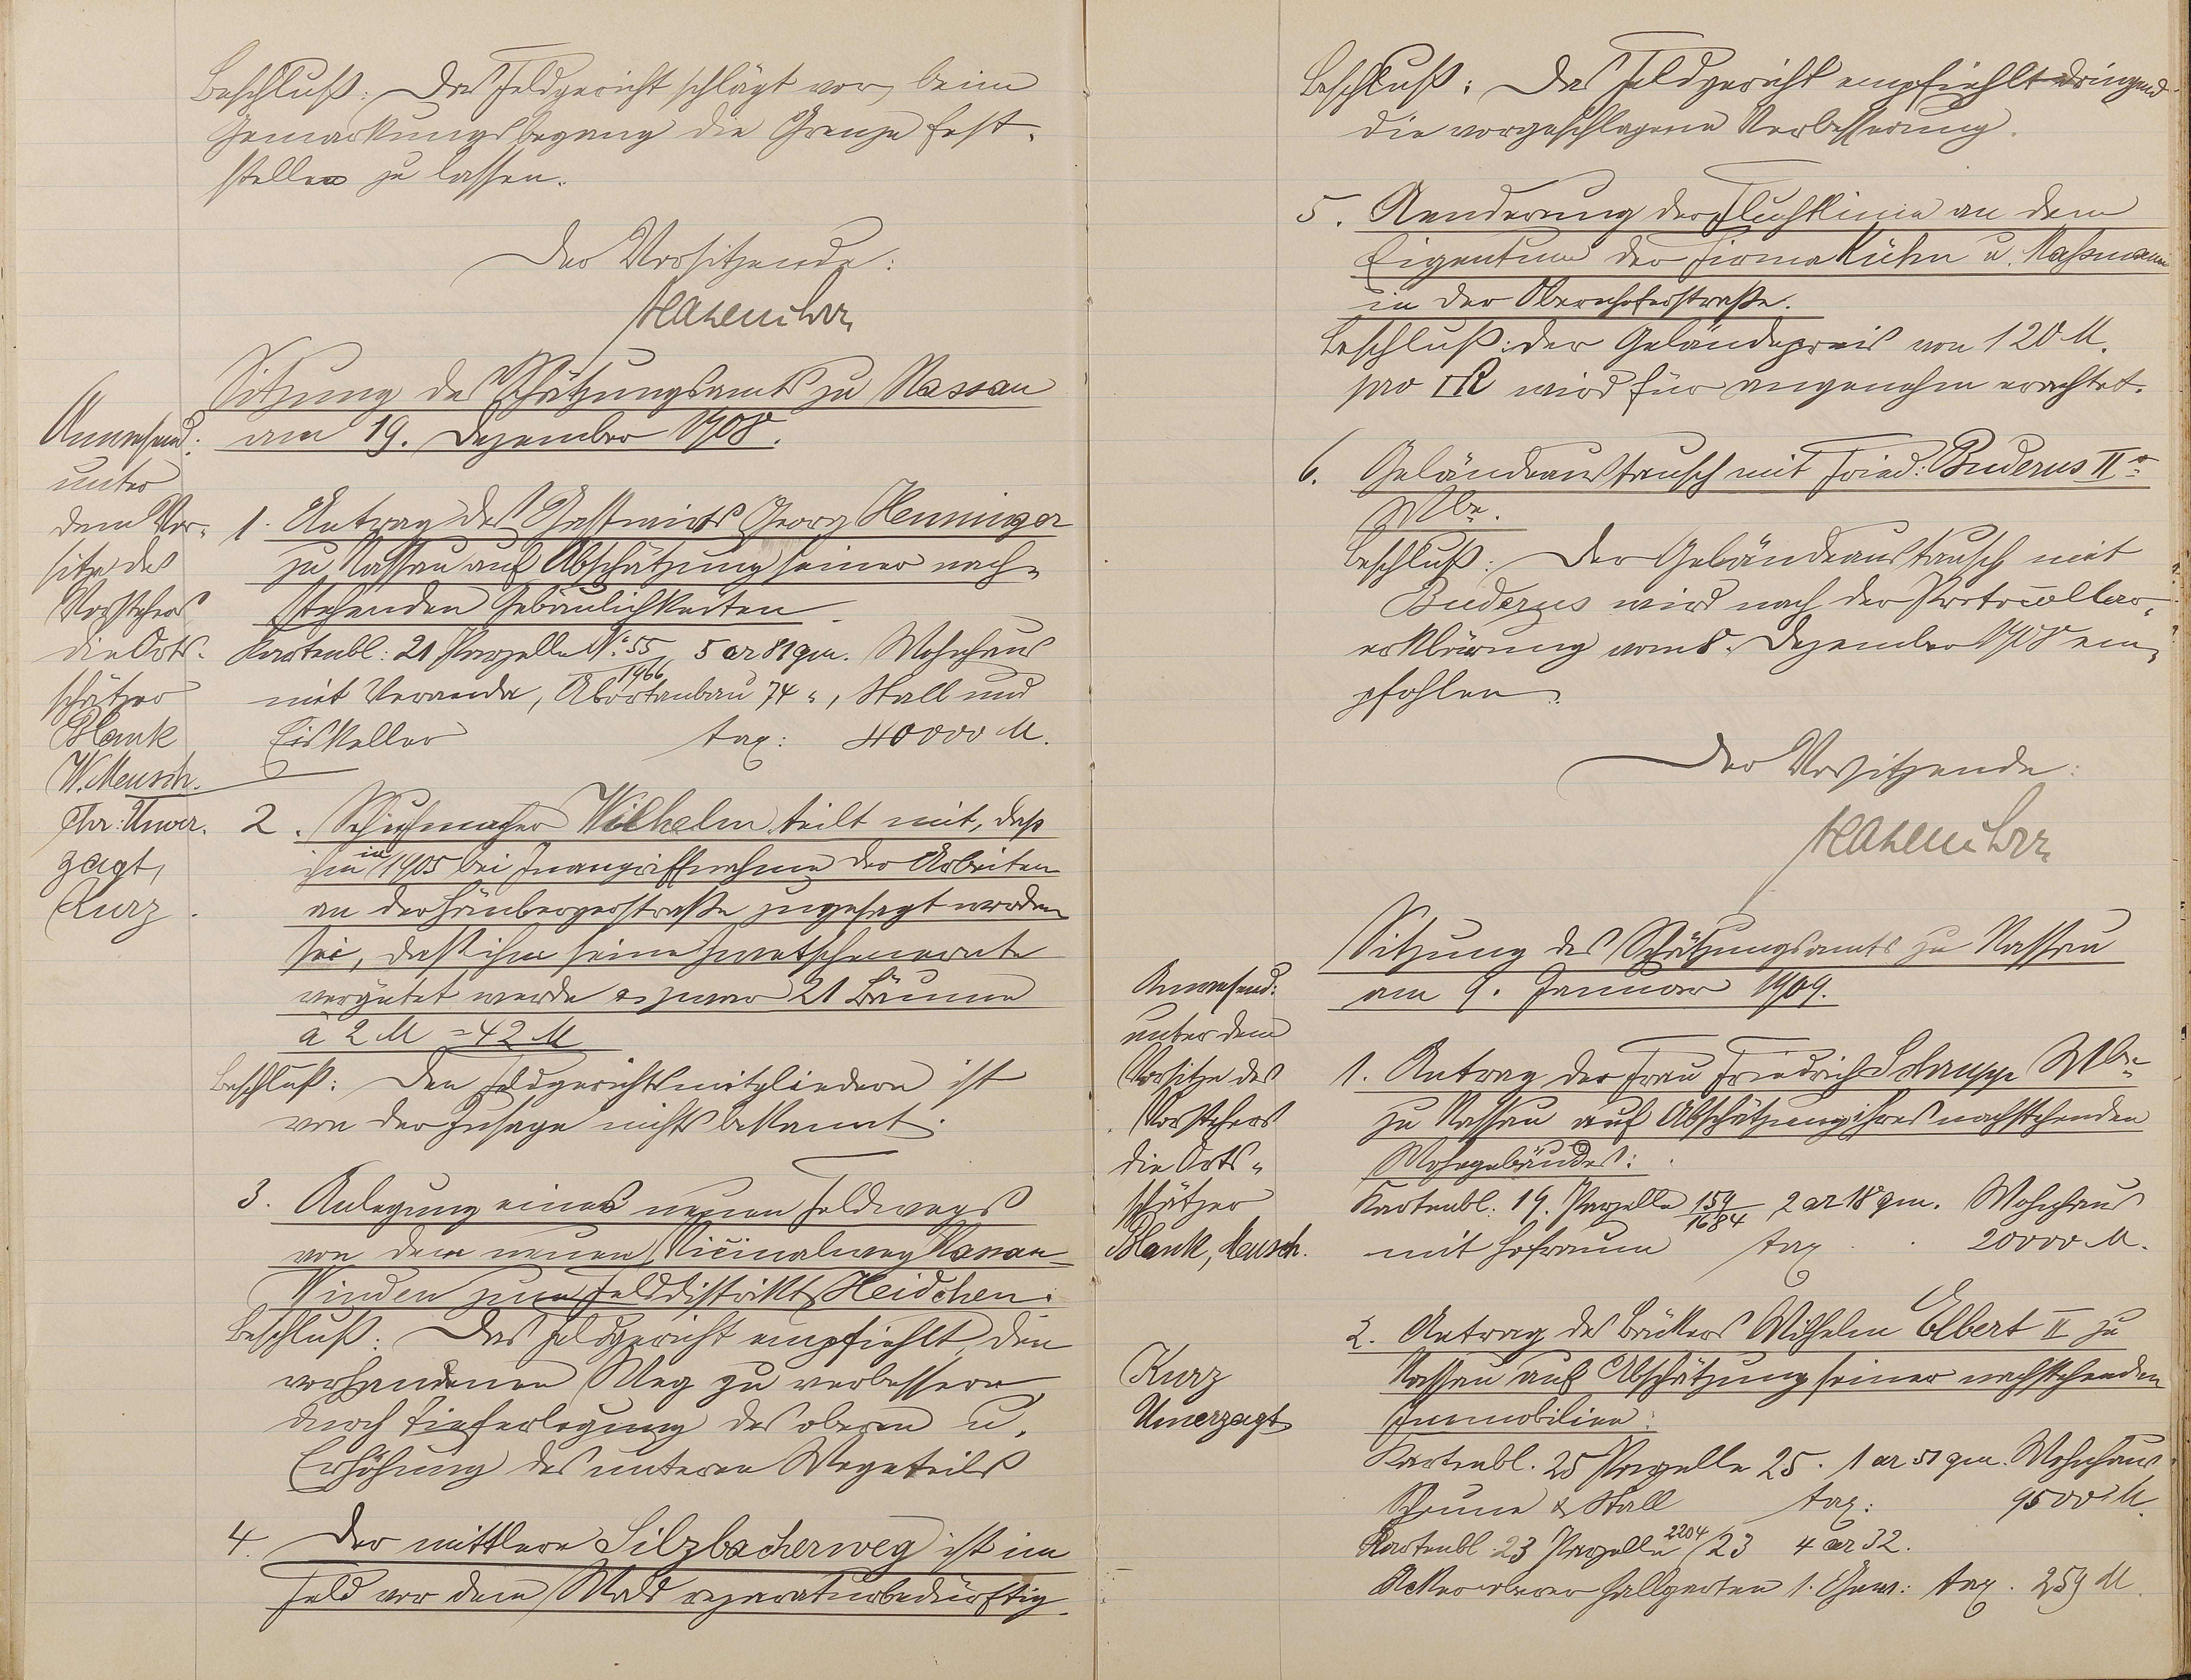 Beschluß: Das Feldgericht schlägt vor, beim
Gemarkungsbegang die Grenze fest-
stellen zu lassen.
Der Vorsitzende:
Hasenclever
Sitzung des Schätzungsamts zu Nassau
am 19. Dezember 1908.
Anwesend:
unter
dem Vor-
sitze des
Vorstehers
die Orts-
schätzer
Blank
W. Meusch.
Chr. Unver-
zagt,
Kurz.
1. Antrag des Gastwirts Georg Henninger
zu Nassau auf Abschätzung seiner nach-
stehenden Gebäulichkeiten.
Kartenbl: 21 Parzelle N: 55/1966 5 ar 81 qm. Wohnhaus
mit Veranda, Abortanbau 74 ", Stall und
Eiskeller tax: 40000 M.
2. Schuhmacher Wilhelm teilt mit, daß
ihm in 1905 bei Inangriffnahme der Arbeiten
an der Hömbergerstraße zugesagt worden
sei, daß ihm seine Zwetschenernte
vergütet werde u. zwar 21 Bäume
à 2 M = 42 M
Beschluß: Den Feldgerichtsmitgliedern ist
von der Zusage nichts bekannt.
3. Anlegung eines neuen Feldwegs
von dem neuen Vicinalweg Nassau-
Winden zum Felddistrikt Heidchen.
Beschluß: Das Feldgericht empfiehlt, den
vorhandenen Weg zu verbessern
durch Tieferlegung des oberen u.
Erhöhung des unteren Wegeteils
4. Der mittlere Silzbacherweg ist im
Feld vor dem Wald reparaturbedürftig.
Beschluß: Das Feldgericht empfiehlt dringend
die vorgeschlagene Verbesserung.
5. Aenderung der Fluchtlinie an dem
Eigentum der Firma Kühn u. Naßmann
in der Obernhoferstraße.
Beschluß: der Geländepreis von 120 M.
pro □R wird für angenehm erachtet.
6. Geländeaustausch mit Fried: Buderus II r
Wwe.
Beschluß: Der Geländeaustausch mit
Buderus wird nach der Protocollar-
erklärung vom 8. Dezember 1908 em-
pfohlen.
Der Vorsitzende:
Hasenclever
Sitzung des Schätzungsamts zu Nassau
am 9. Januar 1909.
Anwesend:
unter dem
Vorsitze des
Vorstehers
die Orts-
schätzer
Blank, Meusch.
Kurz
Unverzagt
1. Antrag der Frau Friedrich Schrupp Wwe
zu Nassau auf Abschätzung ihres nachstehenden
Wohngebäudes:
Kartenbl: 19. Parzelle 159/1684 2 ar 18 qm. Wohnhaus
mit Hofraum tax. 20000 M.
2. Antrag des Bäckers Wilhelm Elbert II zu
Nassau auf Abschätzung seiner nachstehenden
Immobilien:
Kartenbl. 25 Parzelle 25. 1 ar 51 qm. Wohnhaus
Scheune & Stall tax: 9500 M.
Kartenbl. 23 Parzelle 2204/23 4 ar 32.
Acker oberer Hallgarten 1. Gew: tax. 259 M.